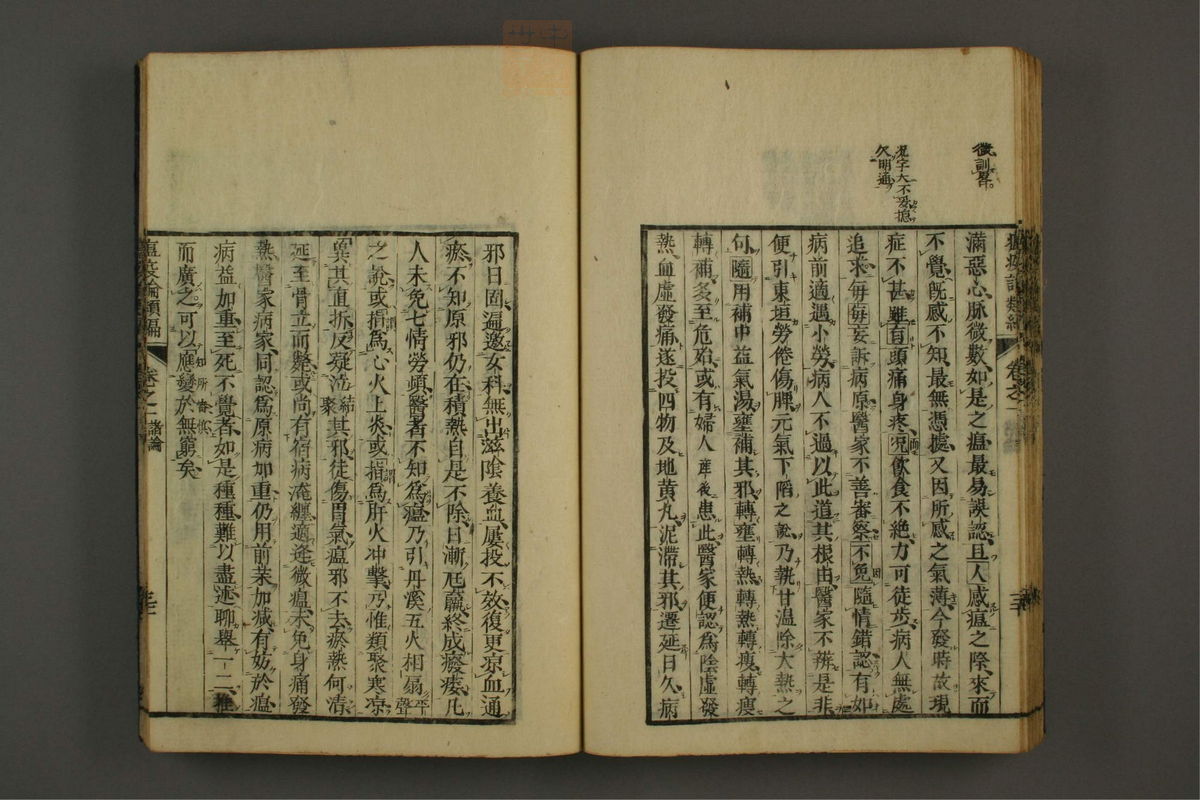 微訓督
況字大不妥擔
欠明通
滿惡心脉微數如是之瘟最易誤認且人感瘟之際來而
不覺旣感不知最無憑據又因所感之氣薄今發時故現
症不甚雖有頭痛身疼況飲食不絶力可徒步病人無處
追求每每妄訴病原醫家不善審察不免隨情錯認有如
病前適遇小勞病人不過以此道其根由醫家不辨是非
便引東垣勞倦傷脾元氣下陷之說乃執甘温除大熱之
句隨用補中益氣湯壅補其邪轉壅轉熱轉熱轉瘦轉瘦
轉補多至危殆或有婦人產後患此醫家便認爲陰虛發
熱血虛發痛遂投四物及地黄丸泥滯其邪遷延日久病
邪日固遍邀女科無出滋陰養血屢投不效復更凉血通
瘀不知原邪仍在積熱自是不除日漸尫羸終成癈痿凡
人未免七情勞頓醫者不知爲瘟乃引丹溪五火相扇平聲
之說或指爲心火上炎或指爲肝火冲擊乃惟類聚寒凉
冀其直折反疑泣結聚其邪徒傷胃氣瘟邪不去瘀熱何清
延至骨立而斃或尚有宿病淹纏適逢微瘟未免身痛發
熱醫家病家同認爲原病加重仍用前藥加減有妨於瘟
病益加重至死不覺者如是種種難以盡述聊舉一二推
而廣之知所審機可以應變於無窮矣
瘟疫論類編
卷之二
諸論